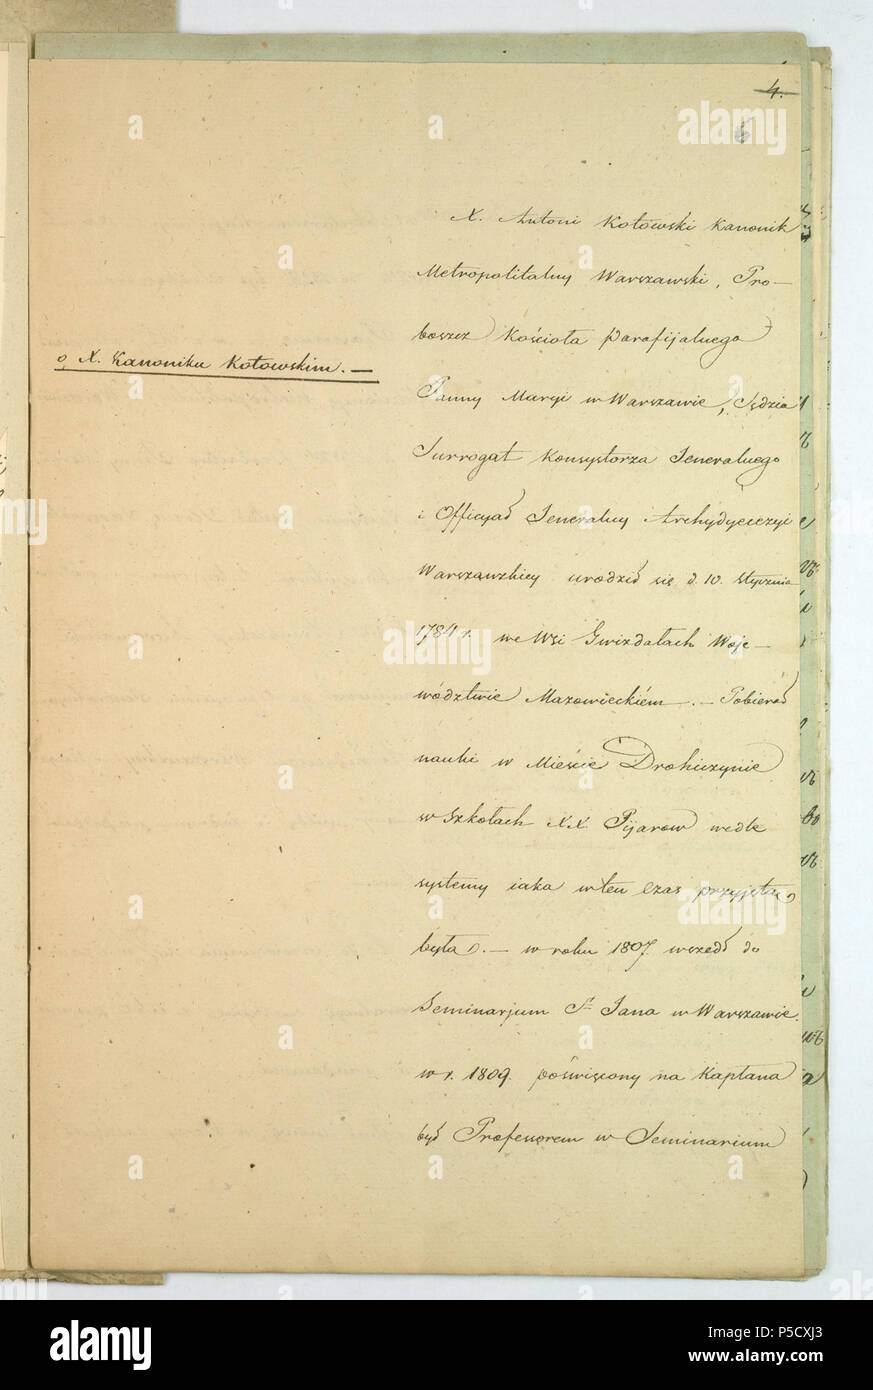 4.
6
X. Antoni Kotowski Kanonik
Metropolitalny Warszawski, Pro-
boszcz Kościoła parafijalnego
o X. Kanoniku Kotowskim. —
Panny Maryi w Warszawie, Sędzia
Surrogat Konsystorza Jeneralnego
i Officyał Jeneralny Archydyecezyi
Warszawskiey urodził się d. 10. stycznia
1784 r. we Wsi Gwizdałach Woje-
wództwie Mazowieckiém. — Pobierał
nauki w Mieście Drohiczynie
w szkołach XX. Pijarow wedle
systemy iaka wten czas przyjęta
była. — w roku 1807. wszedł do
Seminarjum St. Jana w Warszawie.
w r. 1809. poświęcony na Kapłana
był Professorem w Seminarium
alamy
a
alamy stock photo
Image ID: P5CXJ3
www.alamy.com